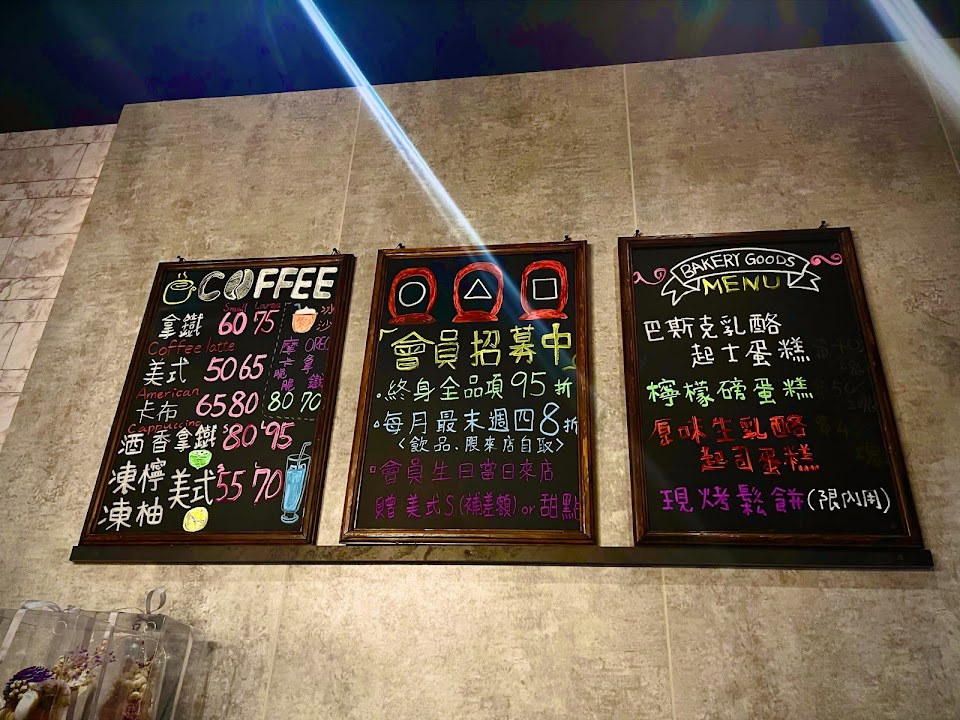 COFFEE
Small Large
拿鐵 60 75
Coffee latte
美式 50 65
American
卡布 65 80
Cappuccino
酒香拿鐵 80 95
凍檸
凍柚
美式 55 70
冰沙
摩卡脆脆 80
OREO拿鐵 70
「會員招募中」
終身全品項 95折
每月最末週四 8折
<飲品、限來店自取>
會員生日當日來店
贈 美式S(補差額) or 甜點
BAKERY GOODS
MENU
巴斯克乳酪
起士蛋糕
檸檬磅蛋糕
原味生乳酪
起司蛋糕
現烤鬆餅(限內用)